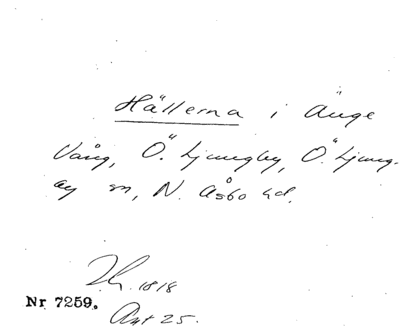 Hällerna i Änge
Vång, Ö. Ljungby, Ö. Ljung-
by sn, N. Åsbo hd.
1818
Nr 7259.
Akt 25.